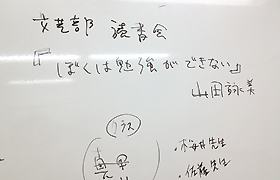 文芸部 読書会
『ぼくは勉強ができない』
山田詠美
クラス
・桜井先生
・佐藤先生